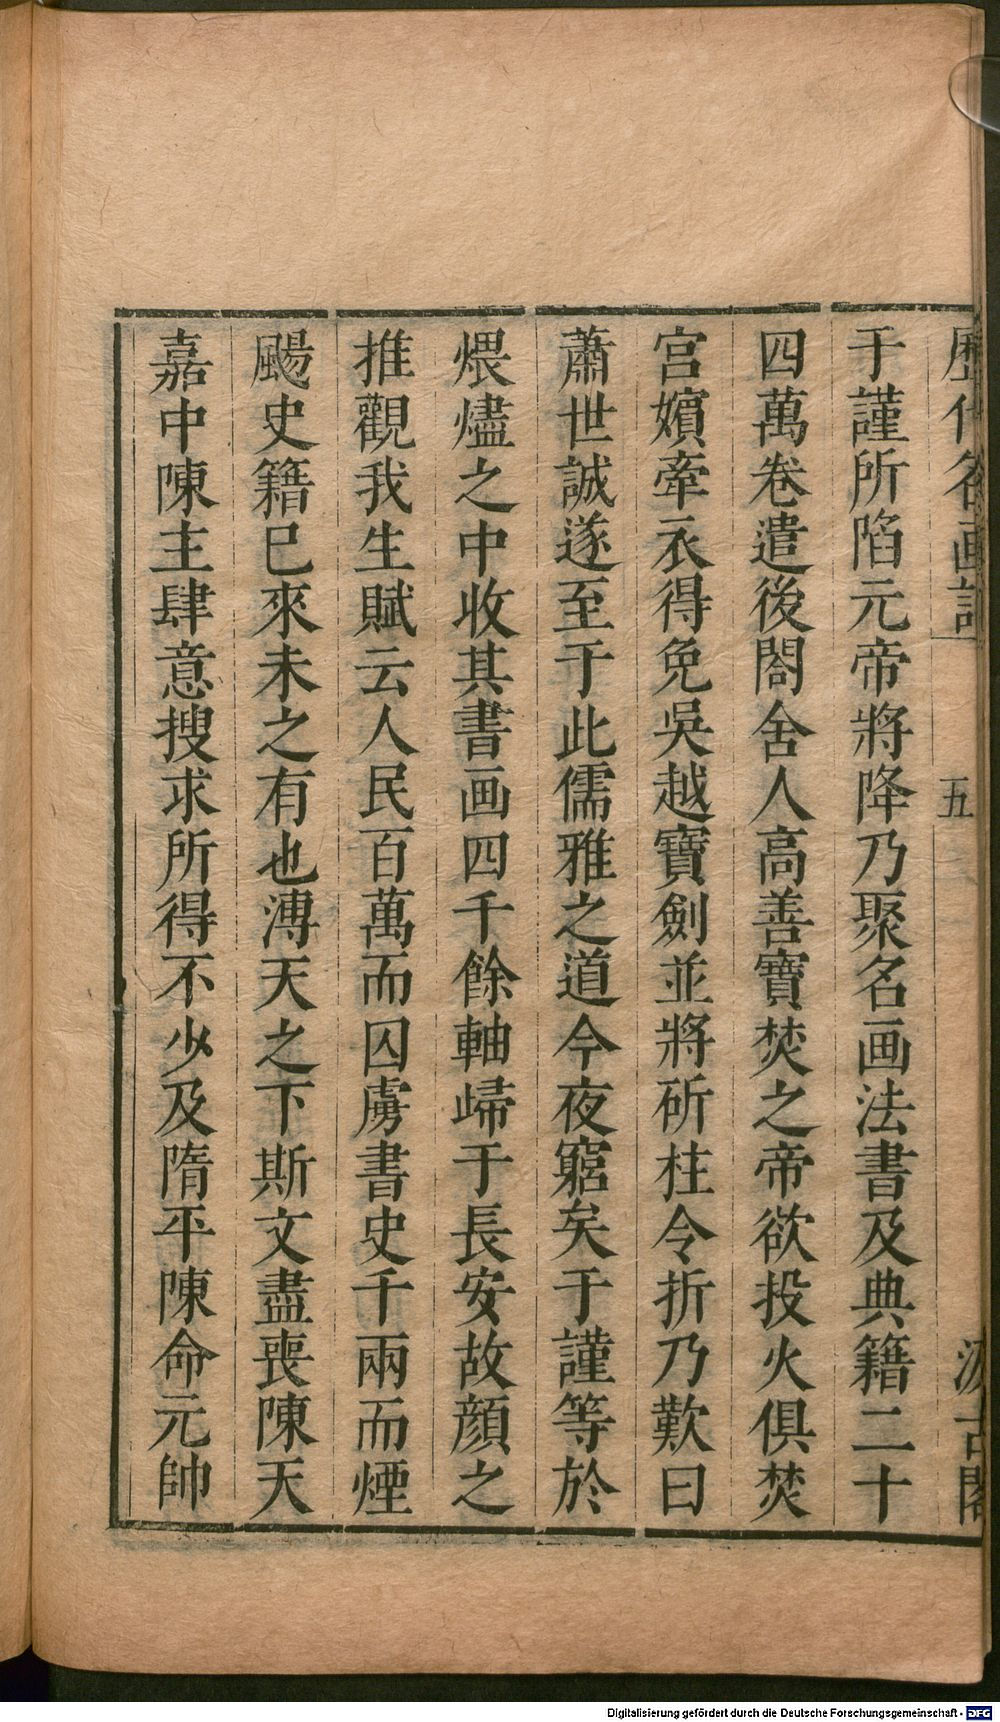 歷代名画記
五
汲古閣
于謹所陷元帝將降乃聚名画法書及典籍二十
四萬卷遣後閤舍人高善寶焚之帝欲投火俱焚
宮嬪牽衣得免吳越寶劍並將斫柱令折乃歎曰
蕭世誠遂至于此儒雅之道今夜窮矣于謹等於
煨燼之中收其書画四千餘軸歸于長安故顏之
推觀我生賦云人民百萬而囚虜書史千兩而煙
颺史籍已來未之有也溥天之下斯文盡喪陳天
嘉中陳主肆意搜求所得不少及隋平陳命元帥
Digitalisierung gefördert durch die Deutsche Forschungsgemeinschaft - DFG